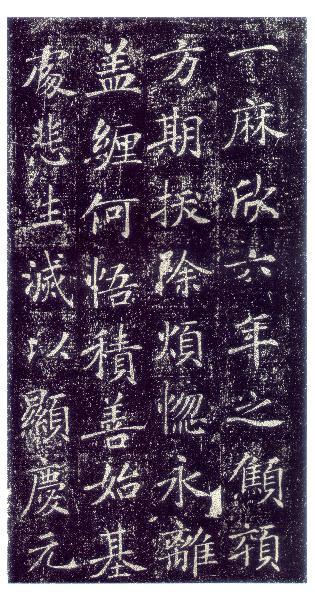 一麻欣六年之顦顇
方期拔除煩惱永離
盖纏何悟積善始基
處悲生滅以顯慶元